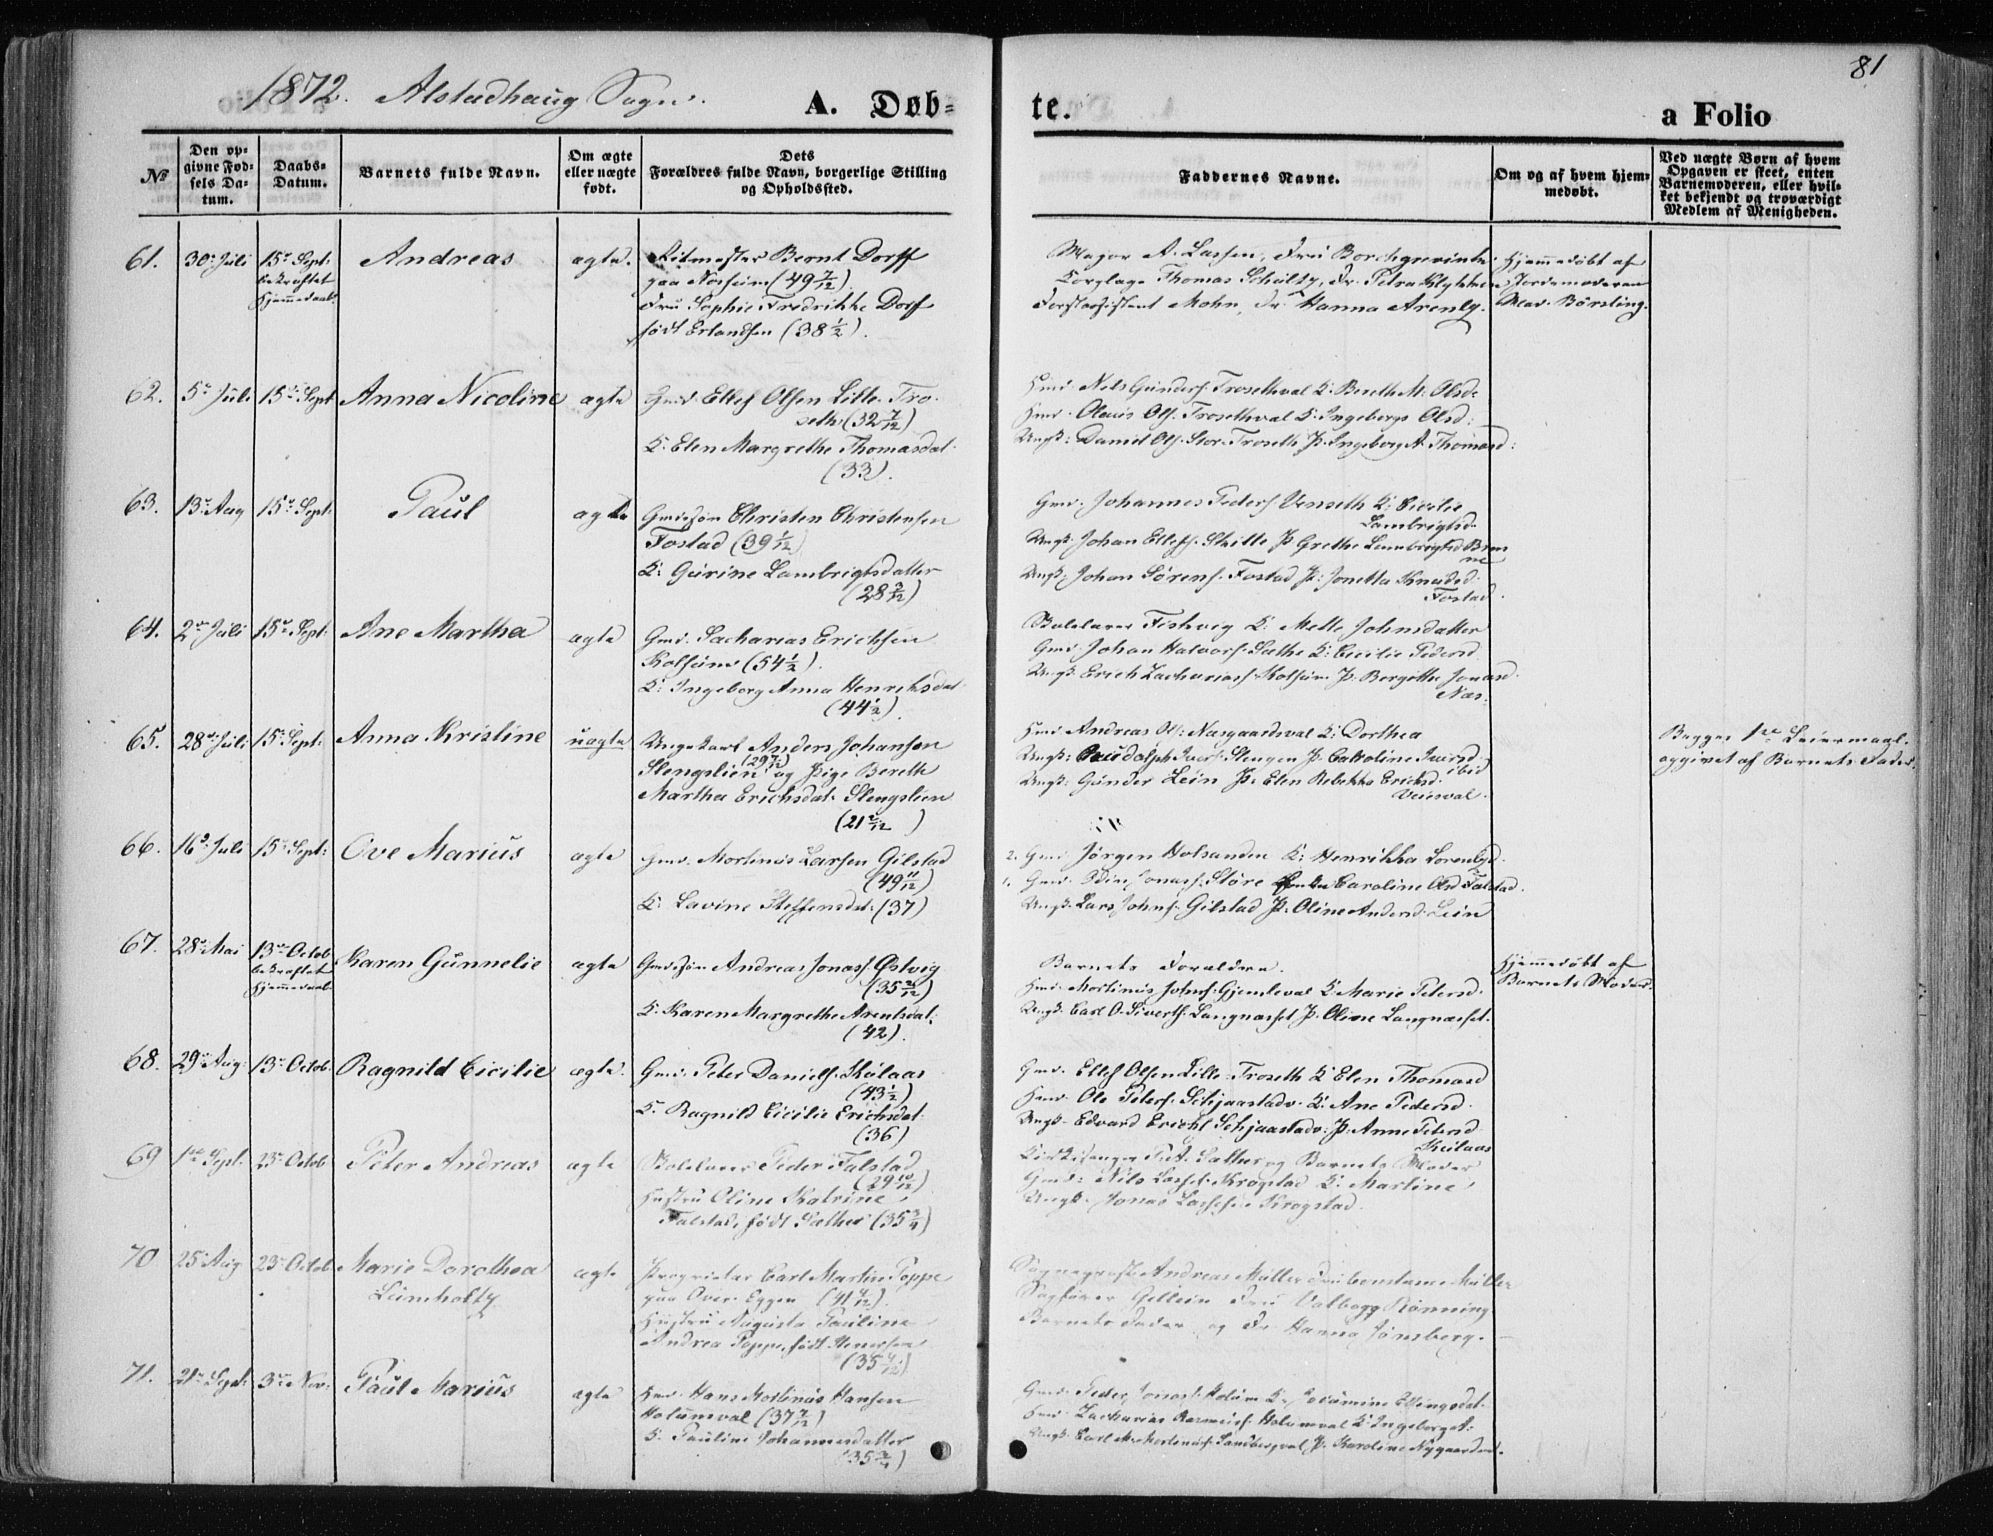 81
1872. Alstadhaug Sogn.
A. Døb-
te.
a Folio
No
Den op-
givne Fød-
sels Da-
tum.
Daabs-
Datum.
Barnets fulde Navn.
Om ægte
eller uægte
født.
Dets
Forældres fulde Navn, borgerlige Stilling
og Opholdssted.
Faddernes Navne.
Om og af hvem hjem-
medøbt.
Ved uægte Børn af hvem
Opgaven er skeet, enten
Barnemoderen, eller hvil-
ket bekjendt og troværdigt
Medlem af Menigheden.
61. 30 Juli 15 Sept: Andreas ægte. Ritmester Bernt Dorff
bekræftet
Hjemmedaab
paa Norheim (49 7/12)
Fru Sophie Fredrikke Dorf
født Erlandsen (38 1/2).
Major A. Lassen, Fru Borchgrevink
Thomas Schultz, Fr. Petra Klykken
Forstassistent Mohn, Fr. Hanna Arentz.
Hjemmedøbt af
Jordemoderen
Mad. Børsting.
62. 5 Juli 15 Sept Anna Nicoline ægte Gmd Ellef Olsen Lille Tro-
seth (32 7/12)
K: Elen Margrethe Thomasdat.
(33).
Hmd. Nels Gunders. Trosethval K: Bereth M. Olsd:
Hmd. Olaus Ols. Trosethval K: Ingeborg Olsd:
Ungk: Daniel Ols. Stor-Troseth P. Ingeborg A. Thomasd:
63. 13 Aug 15 Sept: Paul ægte Gmdssøn Christen Christensen
Fostad (39 1/12)
K: Gurine Lambrigtsdatter
(28 3/12)
Gmd. Johannes Peders. Venseth K: Cicilie
Lambrigtsd.
Ungk. Johan Ellefs. P. Grethe Lambrigtsd
Ungk: Johan Sørens. Fostad P: Jonetta Knudsd:
Fostad.
64. 2 Juli 15 Sept. Ane Martha ægte Gmd. Sacharias Erichsen
Kolsum (54 1/2).
K: Ingeborg Anna Henriksdat
(44 1/2).
Skolelærer Fiskvig K: Mette Johnsdatter
Gmd. Johan Halvors. K: Cicilie Pedersd.
Ungk. Erich Zacharias. Kolsum P: Bergitte Jonasd.
Næs.
65. 28 Juli 15 Sept: Anna Kristine uægte Ungekarl Anders Johansen
Slengslien (29 7/12) og Pige Bereth
Martha Erichsdat. Slengslien
(21 2/12)
Hmd Andreas Ol: Næsgaardsval K: Dorthea
Ungk: Ivers. Slengen P. Catroline Iversd.
ibid
Ungk: Gunder Lein P: Elen Rebekka Erichsd.
Veiesval.
Begges 1ste Leiermaal.
opgivet af Barnets Fader.
66. 16 Juli 15 Sept: Ove Marius ægte Gmd. Mortinus Larsen Gilstad
(49 11/12)
K: Lavine Steffensdat: (37)
2. Gmd Jørgen Holsanden K: Henrikka Lorentzd.
1. Gmd. Odin Jonas. Støre Caroline Olsd Falstad.
Ungk: Lars Johns. Gilstad P. Oline Andersd. Lein
67. 28 Mai 13 Octob Karen Gunnelie ægte Gmdssøn Andreas Jonas. Østvig
bekræftet
Hjemmedaab
(35 2/12)
K: Karen Margrethe Arentsdat:
(42).
Barnets Forældre.
Hmd. Mortinus Johns. Gjemleval K: Marie Petersd.
Ungk. Carl O. Siverts. Langnæsset P. Oline Langnæsset.
Hjemmedøbt af
Barnets Moder.
68. 29 Aug. 13 Octob. Ragnild Cicilie ægte. Gmd. Peter Daniels. Skulaas
(43 1/2)
K. Ragnild Cicilie Erichsdat.
(36)
Gmd. Ellef Olsen Lille-Troseth K Elen Thomasd
Hmd. Ole Peters. Schjaastadv. K: Ane Pedersd.
Ungk. Edvard Erichs Schjaastadv: P. Anne Petersd
Skulaas
69 1 Sept. 23 Octob Peter Andreas ægte Skolelærer Peder Falstad
(29 10/12)
Hustru Oline Katrine
Falstad, født Sæther (35 3/4)
Kirkesanger P. A. Sæther og Barnets Moder
Gmd: Nils Lassens Krogstad K. Martine
Ungk. Jonas Lassesen Krogstad.
70 25 Aug 23 Octob Marie Dorothea ægte Proprietær Carl Martin Poppe
Leimholtz
paa Over-Eggen (41 4/12).
Hustru Augusta Pauline
Andrea Poppe, født
(35 4/12)
Sogneprest Andreas Müller Fru Constanse Müller
Sagfører Gellein Fru Valborg Rønning
Barnets Fader og Fr. Hanna Jønsberg.
71. 21 Sept. 3 Nov. Paul Marius ægte Hmd. Hans Mortinus Hansen
Holumval (37 7/12)
K. Pauline Johannesdatter
(35 3/4)
Gmd. Peder Jonas. Holum K. Ellingsdat.
Hmd. Zacharias Rasmus. Holumval K: Ingeborg A.
Ungk. Carl M. Mortinus. Sandbergval P. Karoline Nygaardsv.